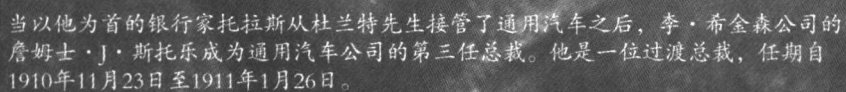 当以他为首的银行家托拉斯从杜兰特先生接管了通用汽车之后，李·希金森公司的
詹姆士·J·斯托乐成为通用汽车公司的第三任总裁。他是一位过渡总裁，任期自
1910年11月23日至1911年1月26日。